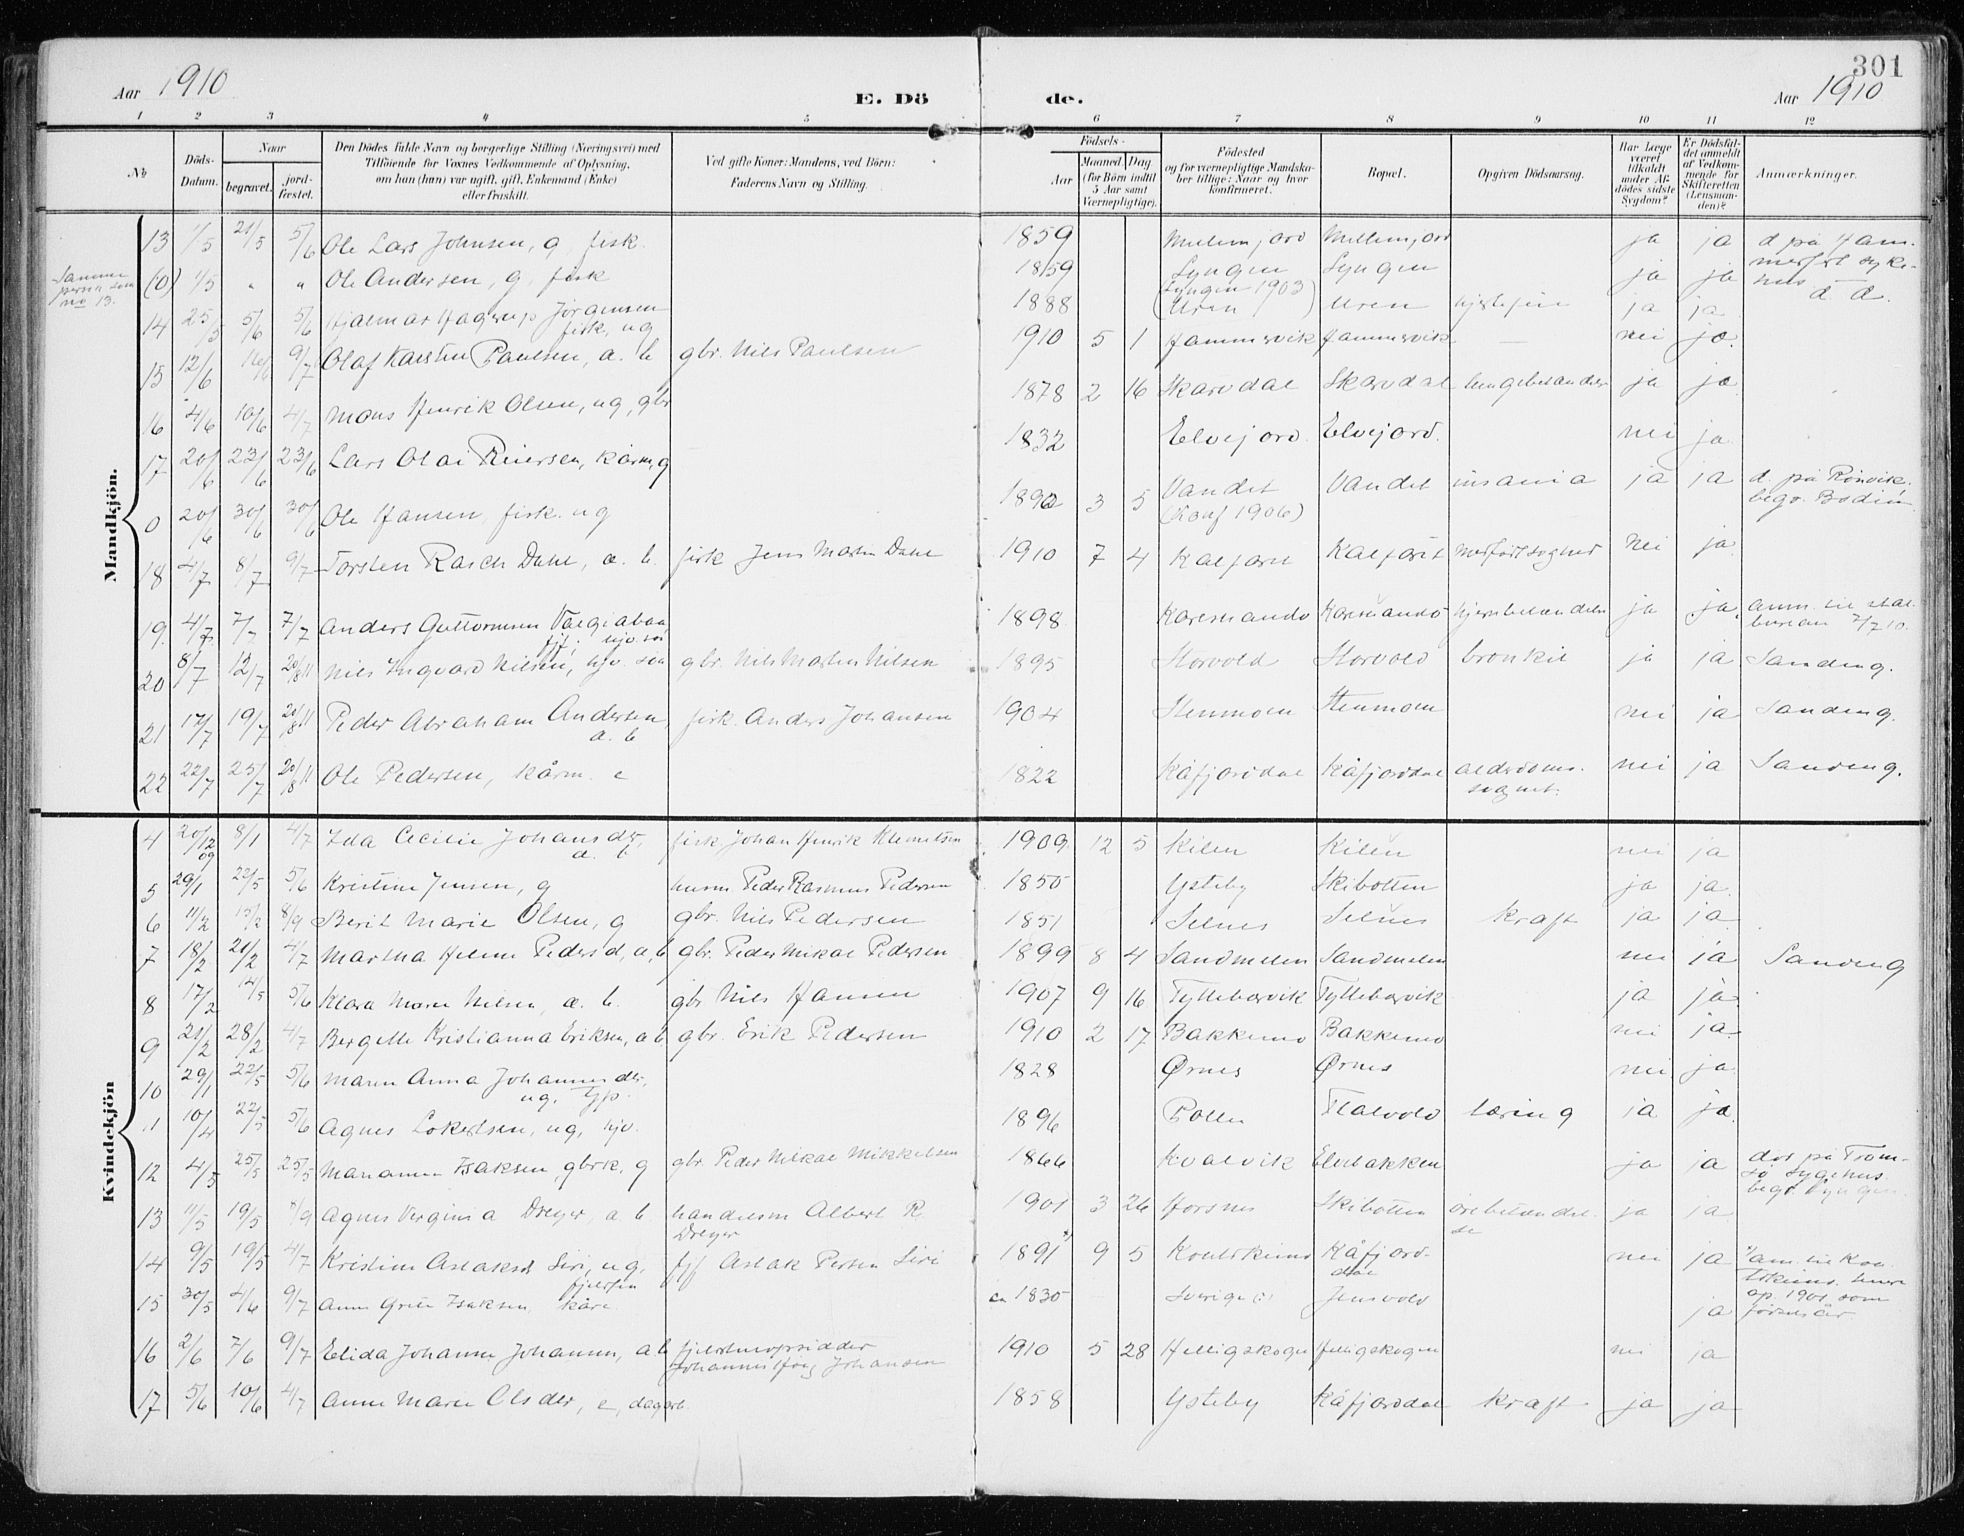 301
Aar 1910
E. Dö
de.
Aar 1910
1 2 3 4 5 6 7 8 9 10 11 12
No
Döds-Datum.
Naar
begravet.
jord-fæstet.
Den Dödes fulde Navn og borgerlige Stilling (Næringsvei) med
Tilföiende for Voxnes Vedkommende af Oplysning,
om han (hun) var ugift, gift, Enkemand (Enke)
eller fraskilt.
Ved gifte Koner: Mandens, ved Börn:
Faderens Navn og Stilling.
Födsels-
Aar
Maaned. Dag.
(for Börn indtil
5 Aar samt
Værnepligtige).
Födested
og for værnepligtige Mandska-
ber tillige: Naar og hvor
konfirmeret.
Bopæl.
Opgiven Dödsaarsag.
Har Læge
været
tilkaldt
under Af-
dödes sidste
Sygdom?
Er Dödsfal-
det anmeldt
af Vedkom-
mende for
Skifteretten
(Lensman-
den)?
Anmærkninger.
Mandkjön.
13 1/5 21/5 5/6 Ole Lars Johnsen, g, fisk. 1859 ja ja d. på Ham-
merfest syke-
hus
Samme
person som
no 13.
(0) 1/5 " " Ole Andersen, g, fisk 1859 Lyngen Lyngen ja ja d. d.
14 25/5 5/6 5/6 Hjalmar Hagerup Jørgensen
fisk, ug 1888 (Lyngen 1903)
Uren Uren ja ja
15 12/6 9/7 Olaf Karsten Paulsen, a. b gbr. Nils Paulsen 1910 5 1 Hammervik Hammervik — nei ja
16 4/6 10/6 4/7 Mons Henrik Olsen, ug, gbr 1878 2 16 Skardal Skardal ja ja
17 20/6 23/6 23/6 Lars Olai Reiersen, kårm, g 1832 Elvejord Elvejord. nei ja
0 20/6 30/6 30/6 Ole Hansen, fisk. ug 3 5 Vandet
(Konf 1906) Vandet insania ja ja d. på Rønvik.
begr. Bodin
18 4/7 8/7 9/7 Torsten Rasch Dahl, a. b. fisk Jens Martin Dahl 1910 7 4 Kalfjord Kalfjord nei ja
19 4/7 7/7 7/7 Anders Guttormsen 1898 ja ja anm. til stat.
bureau
20 8/7 12/7 20/8 11 Nils Ingvard Nilsen, hjv. søn gbr. Nils Martin Nilsen 1895 Storvold Storvold bronkit ja ja Sandeng.
21 17/7 19/7 20/8 11 Peder Abraham Andersen
a. b fisk. Anders Johansen 1904 Stenmoen Stenmoen nei ja Sandeng.
22 22/7 25/7 20/8 11 Ole Pedersen, kårm. e 1822 Kåfjorddal Kåfjorddal alderdoms- nei ja Sandeng.
Kvindekjön
4 20/12
09 8/1 4/7 Ida Cecilie Johansdtr,
a. b fisk Johan Henrik Klemetsen 1909 12 5 Kilen Kilen nei ja
5 29/1 22/5 5/6 Kristine Jensen, g husm Peder Rasmus Pedersen 1850 Ysteby Skibotten ja ja
6 11/2 15/2 8/9 Berit Marie Olsen, g gbr. Nils Pedersen 1851 Selnes Selnes kraft ja ja
7 18/2 21/2 4/7 Martha Helene Pedersd, a, b gbr. Peder Mikal Pedersen 1899 8 4 Sandmelen Sandmelen nei ja Sandeng
8 17/2 14/5 5/6 Klara Marie Nilsen, a. b. gbr Nils Hansen 1907 9 16 Tyttebærvik Tyttebærvik ja ja
9 21/2 28/2 4/7 Bergitte Kristianna Eriksen, a b gbr. Erik Pedersen 1910 2 17 Bakkemo Bakkemo nei ja
10 29/1 22/5 5/6 Maren Anna Johannesdtr,
ug. 1828 Ørnes Ørnes nei ja
11 10/4 22/5 5/6 Agnes Lokertsen, ug, hjv. 1896 Pollen tæring ja ja
12 4/5 25/5 25/5 Marianne Isaksen, gbrk, g gbr. Peder Mikal Mikkelsen 1866 Kvalvik Elvebakken ja ja død på Trom-
sø sygehus.
begr. Lyngen.
13 11/5 19/5 8/9 Agnes Verginia Dreyer, a. b. handelsm Albert R.
Dreyer 1901 3 26 Horsnes Skibotten ørebetændel-
se ja ja
14 9/5 19/5 4/7 Kristine Aslaksd Siri, ug, fjf Aslak Persen Siri 1891 9 5 Kåfjord-
dal nei ja
15 30/5 4/6 9/7 Anne Grete Isaksen, kåre. ca 1830 Sverige Jensvold ja
16 2/6 7/6 9/7 Elida Johanne Johansen, a b fjeldstueopsidder
Johannes Johansen 1910 5 28 Helligskogen Helligskogen nei ja
17 5/6 10/6 4/7 Anne Marie Olsdtr, e, dagarb. 1858 Ysteby Kåfjorddal kraft ja ja